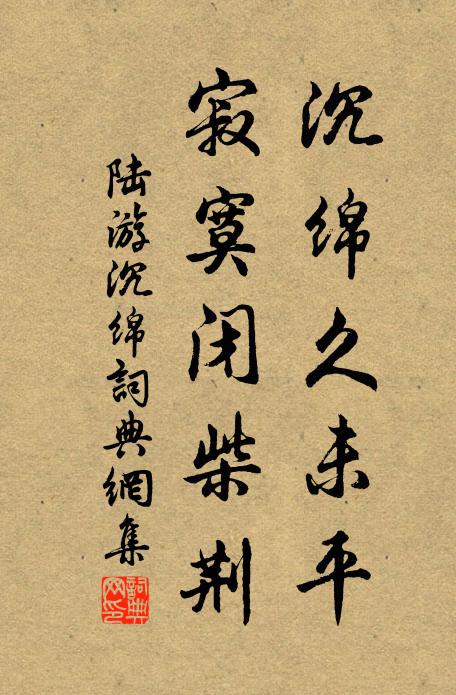 沉绵久未平
寂寞闭柴荆
陆游沉绵詞典網集
詞典网印